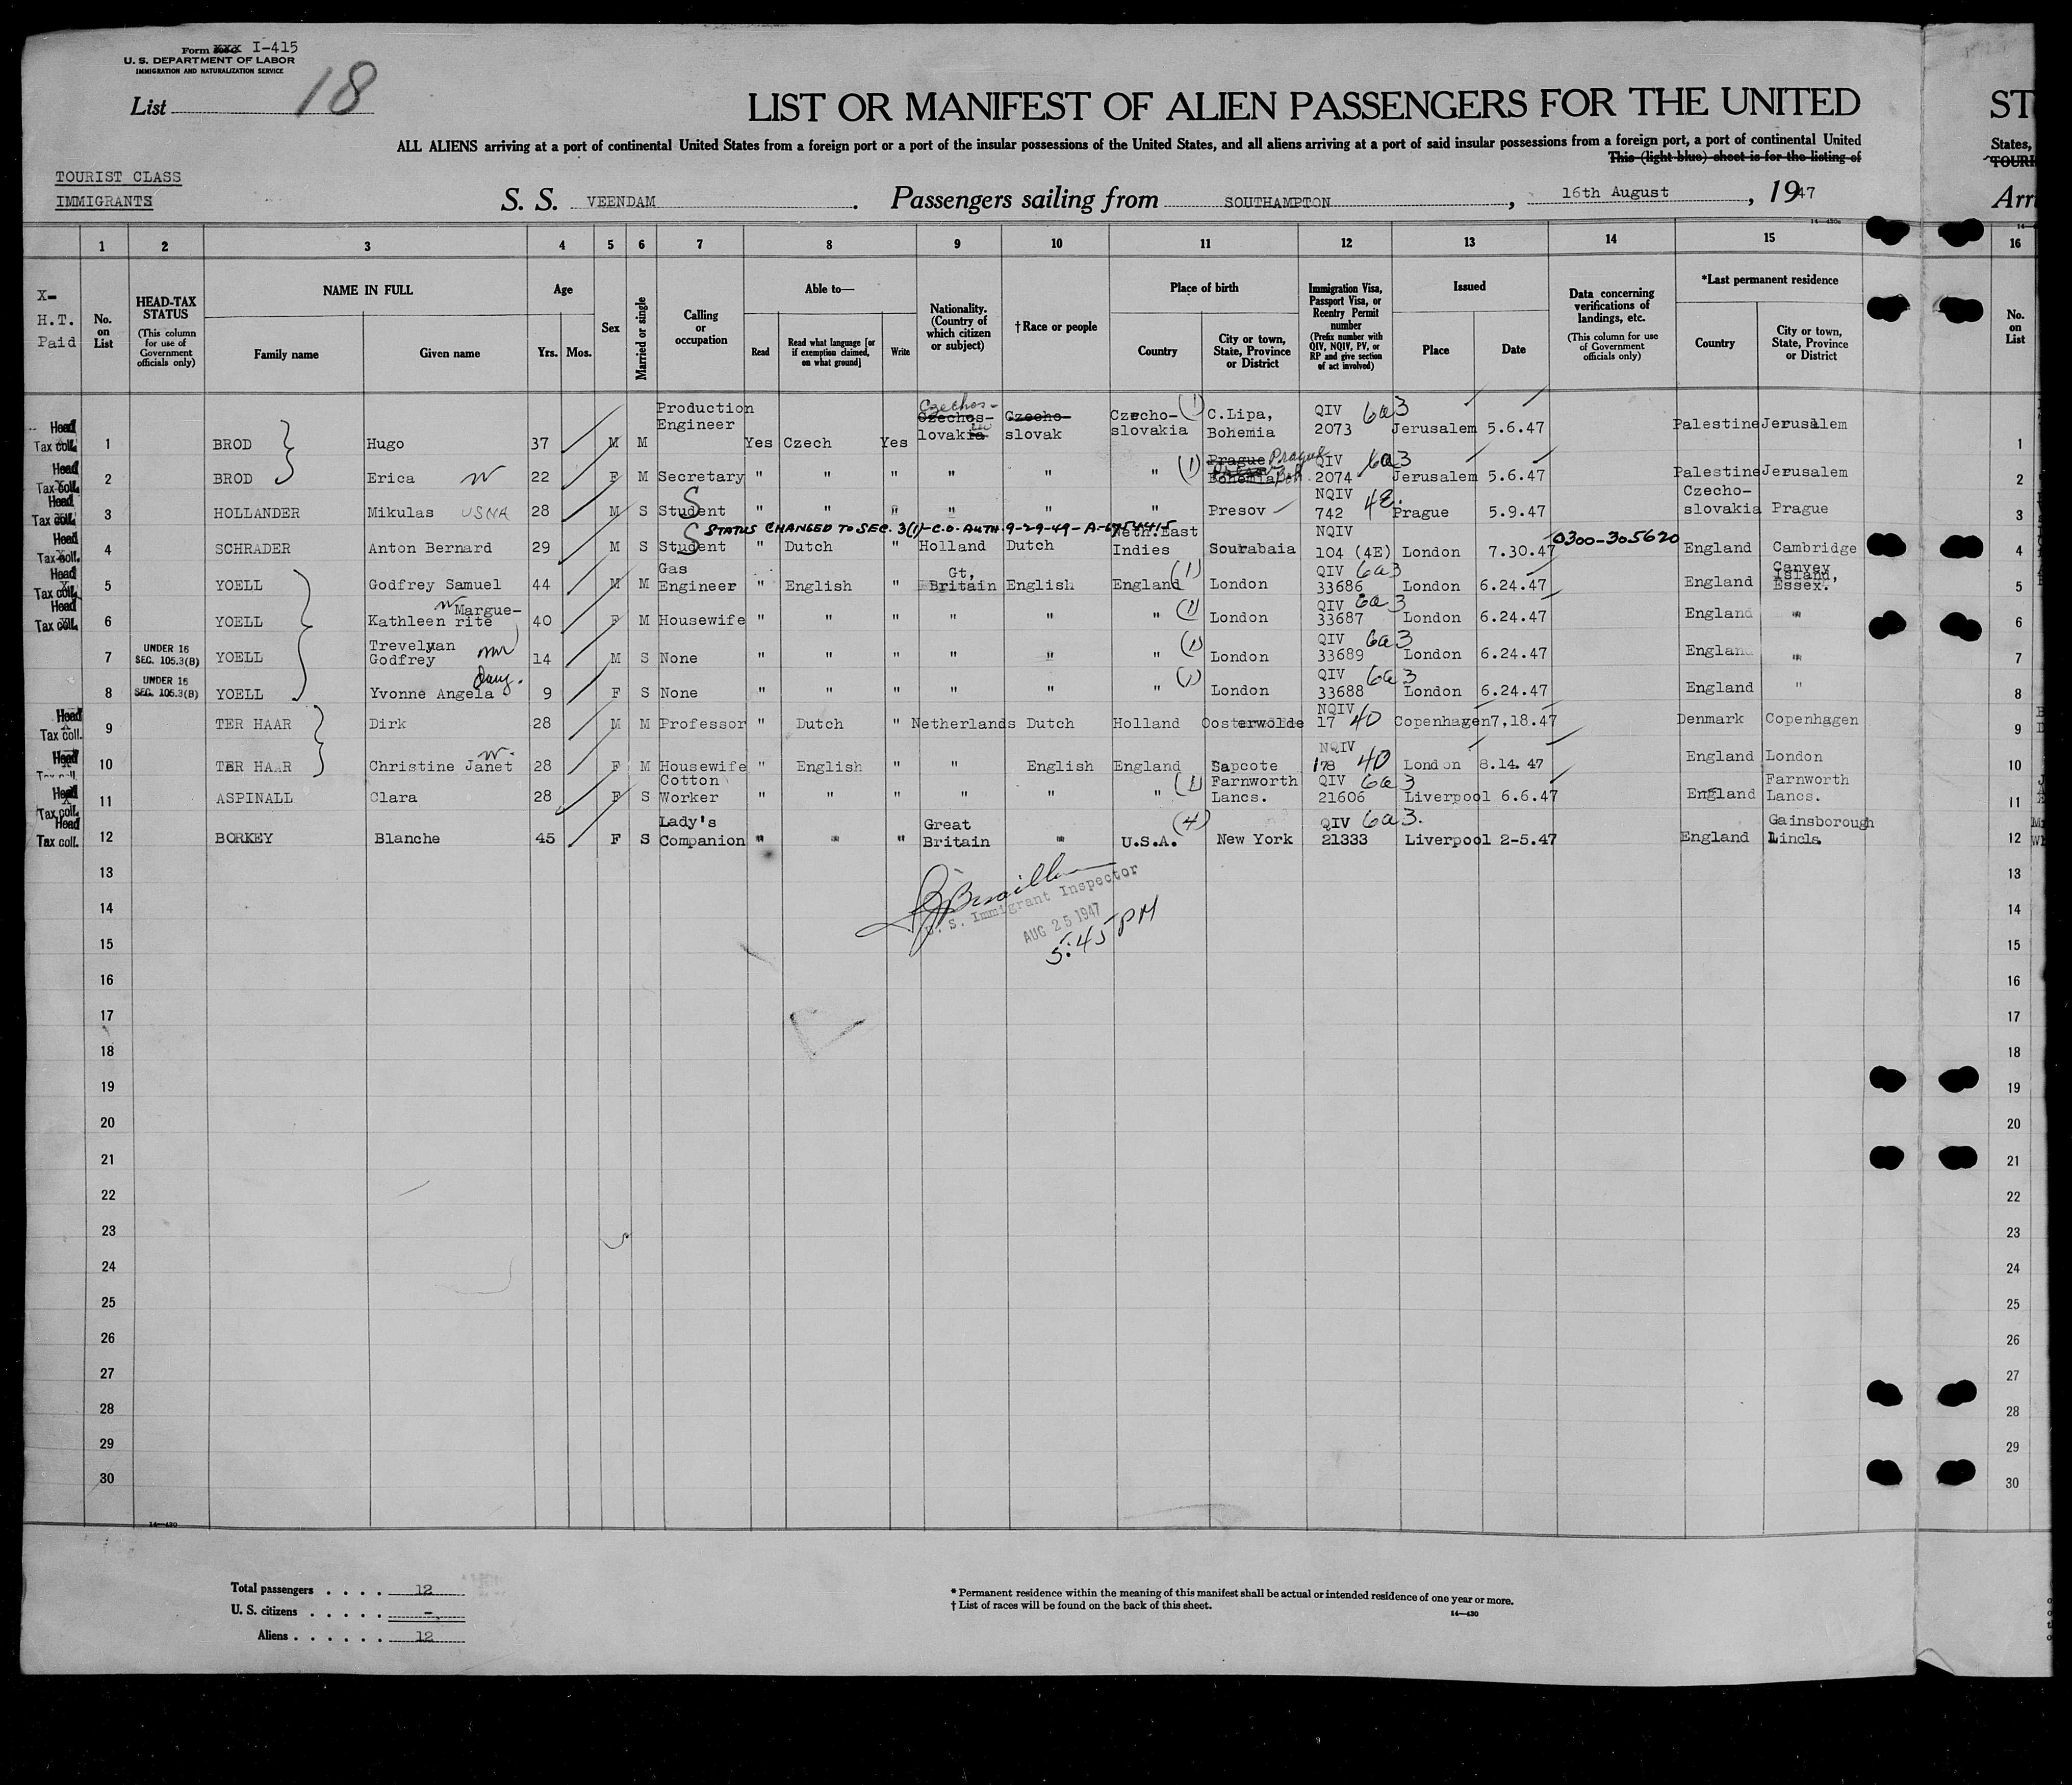 Form I-415
U. S. DEPARTMENT OF LABOR
IMMIGRATION AND NATURALIZATION SERVICE
List 18
LIST OR MANIFEST OF ALIEN PASSENGERS FOR THE UNITED ST
ALL ALIENS arriving at a port of continental United States from a foreign port or a port of the insular possessions of the United States, and all aliens arriving at a port of said insular possessions from a foreign port, a port of continental United States,
This (light blue) sheet is for the listing of
TOURIST CLASS
IMMIGRANTS
S. S. VEENDAM . Passengers sailing from SOUTHAMPTON , 16th August , 1947 Arr
1 2 3 4 5 6 7 8 9 10 11 12 13 14 15 16
X- H.T. Paid
No. on List
HEAD-TAX STATUS (This column for use of Government officials only)
NAME IN FULL Family name Given name
Age Yrs. Mos.
Sex
Married or single
Calling or occupation
Able to— Read Read what language [or if exemption claimed, on what ground] Write
Nationality. (Country of which citizen or subject)
†Race or people
Place of birth Country City or town, State, Province or District
Immigration Visa, Passport Visa, or Reentry Permit number (Prefix number with QIV, NQIV, PV, or RP and give section of act involved)
Issued Place Date
Data concerning verifications of landings, etc. (This column for use of Government officials only)
*Last permanent residence Country City or town, State, Province or District
No. on List
Head Tax coll. 1 BROD Hugo 37 M M Production Engineer Yes Czech Yes Czechos- lovakia Czecho- slovak Czecho- slovakia (1) C.Lipa, Bohemia QIV 2073 6a3 Jerusalem 5.6.47 Palestine Jerusalem 1
Head Tax coll. 2 BROD Erica w 22 F M Secretary " " " " " " (1) Prague Bohemia Prague QIV 2074 6a3 Jerusalem 5.6.47 Palestine Jerusalem 2
Head Tax coll. 3 HOLLANDER Mikulas USNA 28 M S Student S " " " " " " Presov NQIV 742 4E. Prague 5.9.47 Czecho- slovakia Prague 3
STATUS CHANGED TO SEC. 3(1)-C.O. AUTH. 9-29-49-
Head Tax coll. 4 SCHRADER Anton Bernard 29 M S Student S " Dutch " Holland Dutch Neth.East Indies Sourabaia NQIV 104 (4E) London 7.30.47 0300-305620 England Cambridge 4
Head Tax coll. 5 YOELL Godfrey Samuel 44 M M Gas Engineer " English " Gt, Britain English England (1) London QIV 33686 6a3 London 6.24.47 England Canvey Island, Essex. 5
Head Tax coll. 6 YOELL Kathleen Margue- rite w 40 F M Housewife " " " " " " (1) London QIV 33687 6a3 London 6.24.47 England " 6
7 UNDER 16 SEC. 105.3(B) YOELL Trevelyan Godfrey 14 M S None " " " " " " (1) London QIV 33689 6a3 London 6.24.47 England " 7
8 UNDER 16 SEC. 105.3(B) YOELL Yvonne Angela Daug. 9 F S None " " " " " " (1) London QIV 33688 6a3 London 6.24.47 England " 8
Head Tax coll. 9 TER HAAR Dirk 28 M M Professor " Dutch " Netherlands Dutch Holland Oosterwolde NQIV 17 4D Copenhagen 7,18.47 Denmark Copenhagen 9
Head Tax coll. 10 TER HAAR Christine Janet w. 28 F M Housewife " English " " English England Sapcote NQIV 178 4D London 8.14.47 England London 10
Head Tax coll. 11 ASPINALL Clara 28 F S Cotton Worker " " " " " " (1) Farnworth Lancs. QIV 21606 6a3 Liverpool 6.6.47 England Farnworth Lancs. 11
Head Tax coll. 12 BORKEY Blanche 45 F S Lady's Companion " " " Great Britain " U.S.A. (4) New York QIV 21333 6a3. Liverpool 2-5.47 England Gainsborough Lincls. 12
U. S. Immigrant Inspector
AUG 25 1947
5:45 PM
13 13
14 14
15 15
16 16
17 17
18 18
19 19
20 20
21 21
22 22
23 23
24 24
25 25
26 26
27 27
28 28
29 29
30 30
14—430
Total passengers . . . . 12
U. S. citizens . . . . . -
Aliens . . . . . . 12
* Permanent residence within the meaning of this manifest shall be actual or intended residence of one year or more.
† List of races will be found on the back of this sheet.
14—430